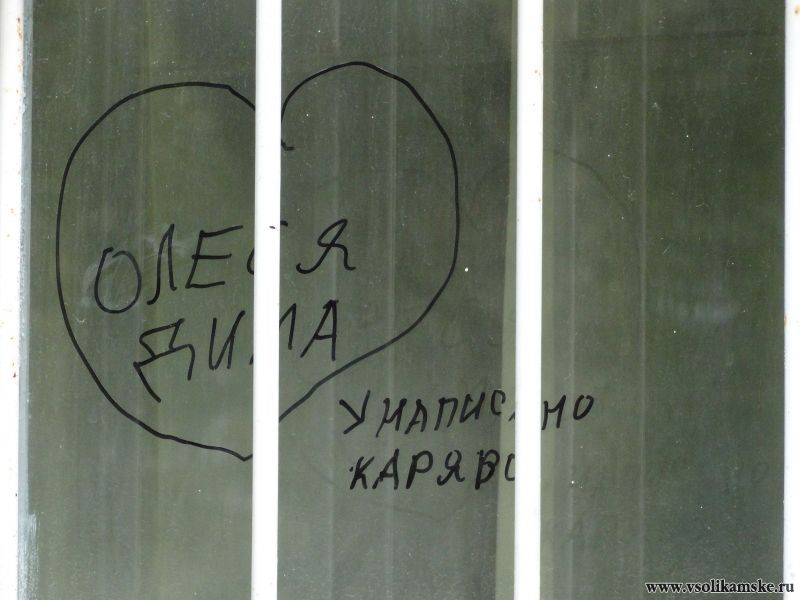 ОЛЕСЯ
ДИМА
У НАПИСАНО
КАРЯВО
www.vsolikamske.ru